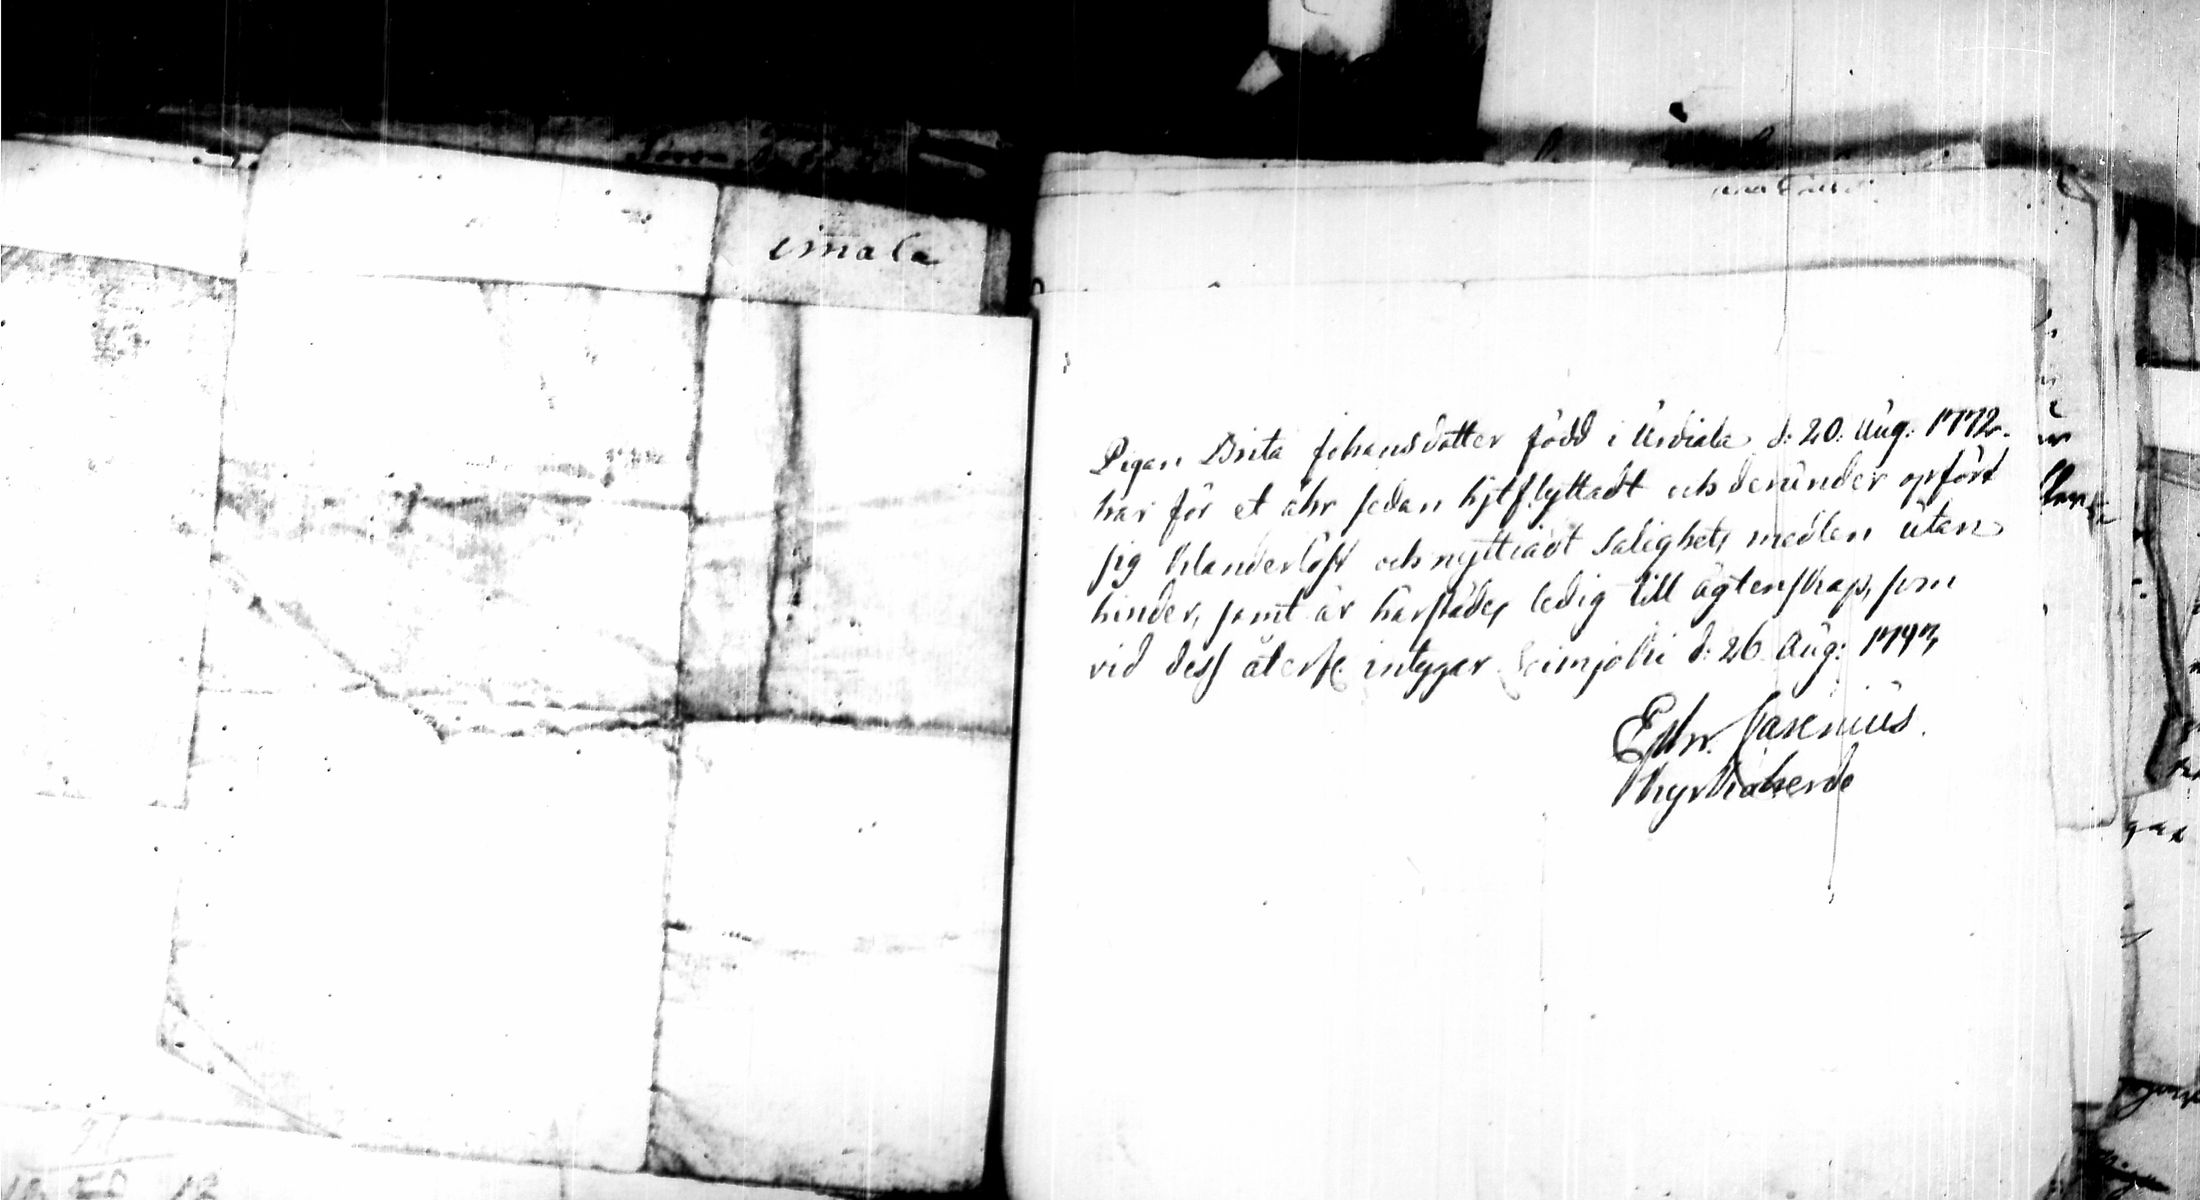 imala
Pigan Brita Johansdotter född i Urdiala d: 20. Aug: 1772.
har för et åhr sedan hjtflyttadt och derunder opfört
sig klanderlöst och nyttiadt Salighets medlen utan
hinder, samt är härstädes ledig till ägtenskap, som
vid dess återfl. intygar Leimjoki d: 26 Aug: 1797,
Esbr. Jasenius.
Kyrkioherde